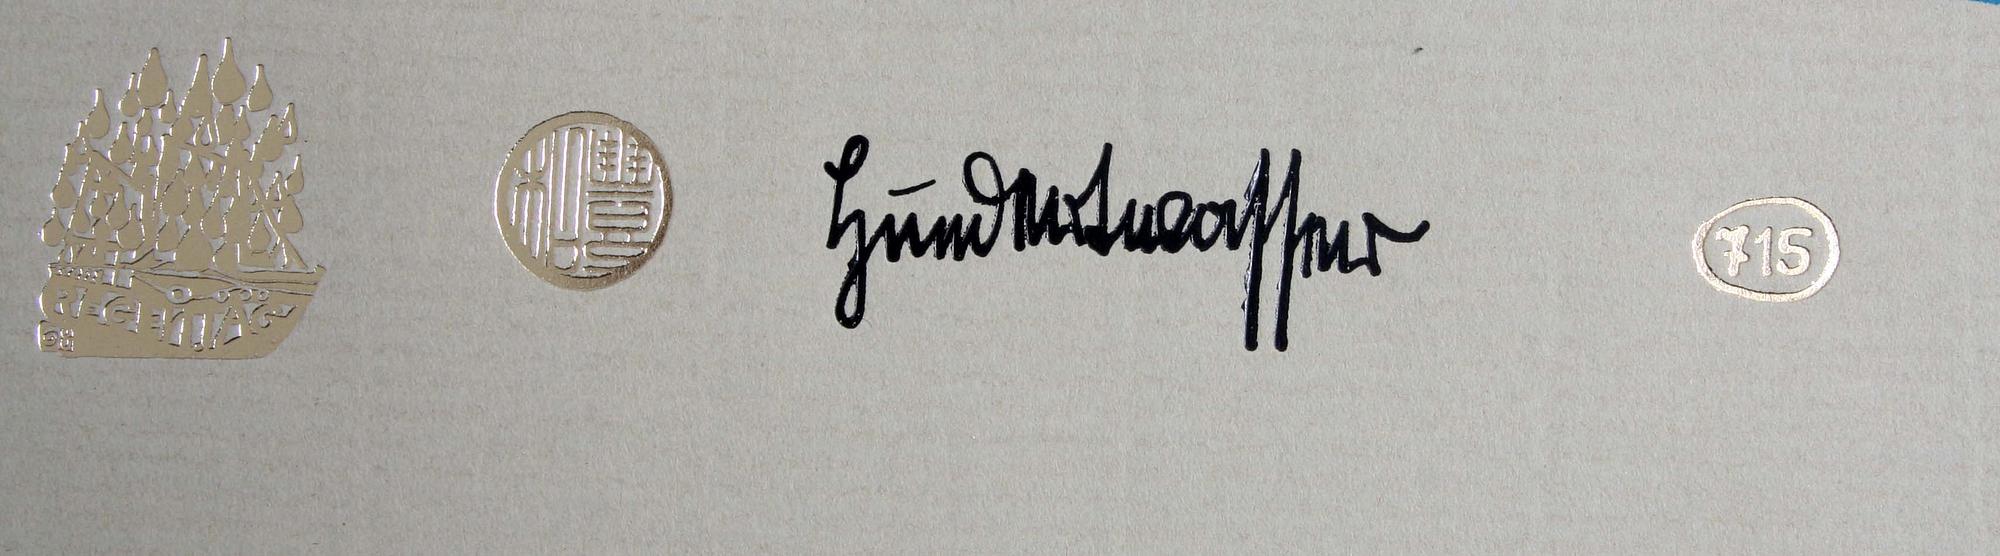 REGENTAG
豐和
Hundertwasser
715